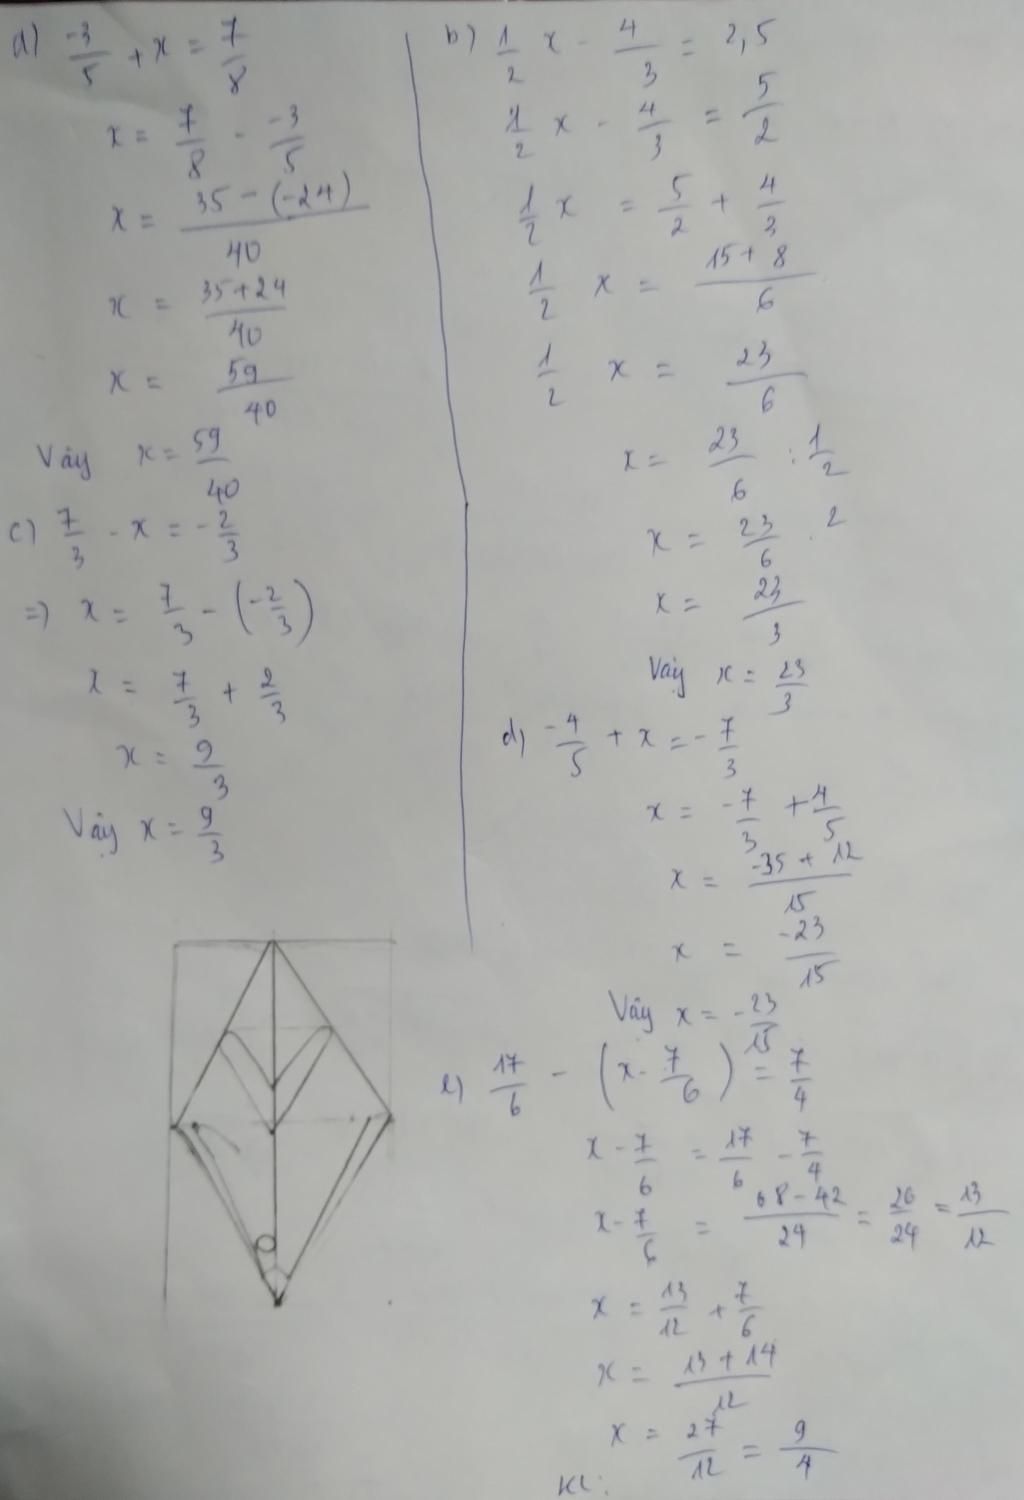 a) -3/5 + x = 7/8
x = 7/8 - -3/5
x = 35 - (-24)/40
x = 35+24/40
x = 59/40
Vậy x = 59/40
c) 7/3 - x = -2/3
=) x = 7/3 - (-2/3)
x = 7/3 + 2/3
x = 9/3
Vậy x = 9/3
b) 1/2 x - 4/3 = 2,5
1/2 x - 4/3 = 5/2
1/2 x = 5/2 + 4/3
1/2 x = 15+8/6
1/2 x = 23/6
x = 23/6 : 1/2
x = 23/6 . 2
x = 23/3
Vậy x = 23/3
d) -4/5 + x = -7/3
x = -7/3 + 4/5
x = -35 + 12/15
x = -23/15
Vậy x = -23/15
e) 17/6 - (x - 7/6) = 7/4
x - 7/6 = 17/6 - 7/4
x - 7/6 = 68-42/24 = 26/24 = 13/12
x = 13/12 + 7/6
x = 13+14/12
x = 27/12 = 9/4
KL: